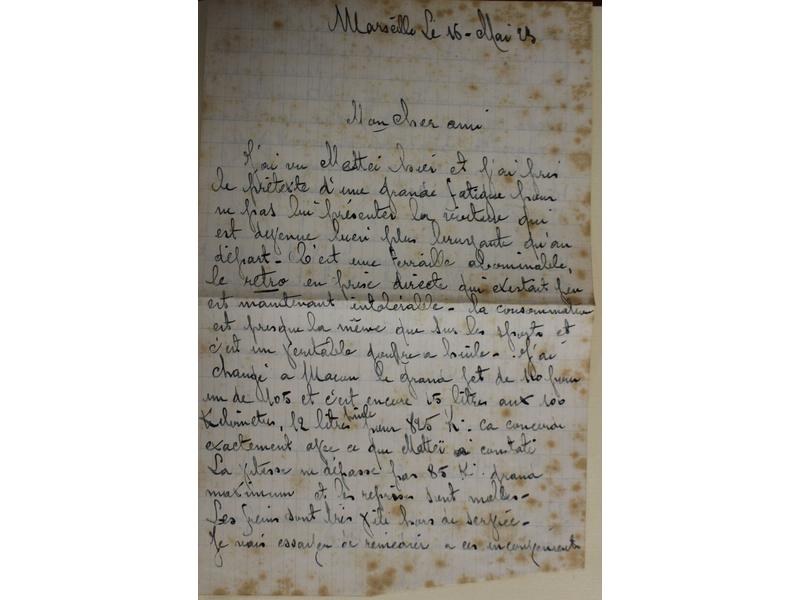 Marseille Le 16 - Mai 23
Mon cher ami
J'ai vu Mattei hier et j'ai pris
le prétexte d'une grande fatigue pour
ne pas lui présenter la voiture qui
est devenue bien plus bruyante qu'au
départ - C'est une ferraille abominable,
le retro en prise directe qui existait peu
est maintenant intolérable - la consommation
est presque la même que sur les sports et
c'est un véritable gouffre a huile - J'ai
changé a Macon le grand jet de 110 pour
un de 105 et c'est encore 15 litres aux 100
Kilomètres, 12 litres huile pour 825 K. ca concorde
exactement avec ce que Mattei a constaté
La vitesse ne dépasse pas 85 K. grand
maximum et les reprises sont molles -
Les freins sont très vite hors de service -
Je vais essayer de remedier a ces inconvénients